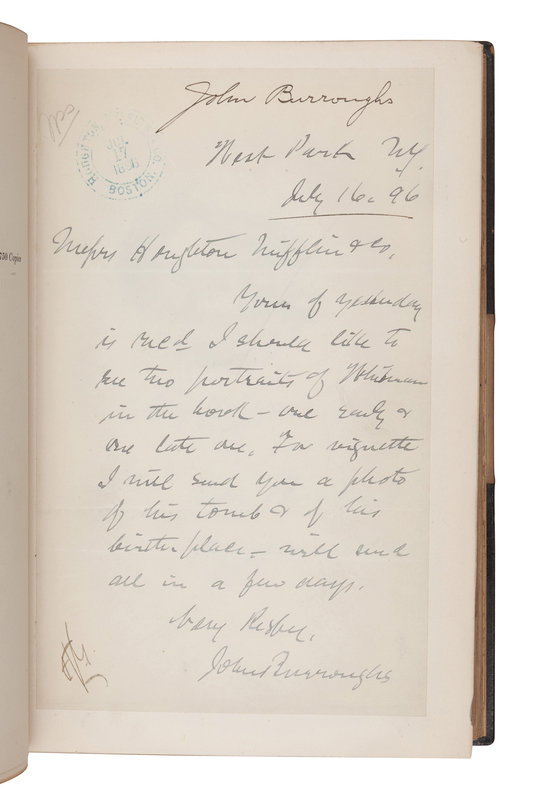 John Burroughs
HOUGHTON, MIFFLIN & CO.
JUL
17
1896
BOSTON.
West Park NY.
July 16. 96
700 Copies
Messrs Houghton Mifflin & Co,
Yours of yesterday
is rec'd. I should like to
see two portraits of Whitman
in the book - one early &
one late one. For vignette
I will send you a photo
of his tomb & of his
birth-place - will send
all in a few days.
Very Respy,
John Burroughs